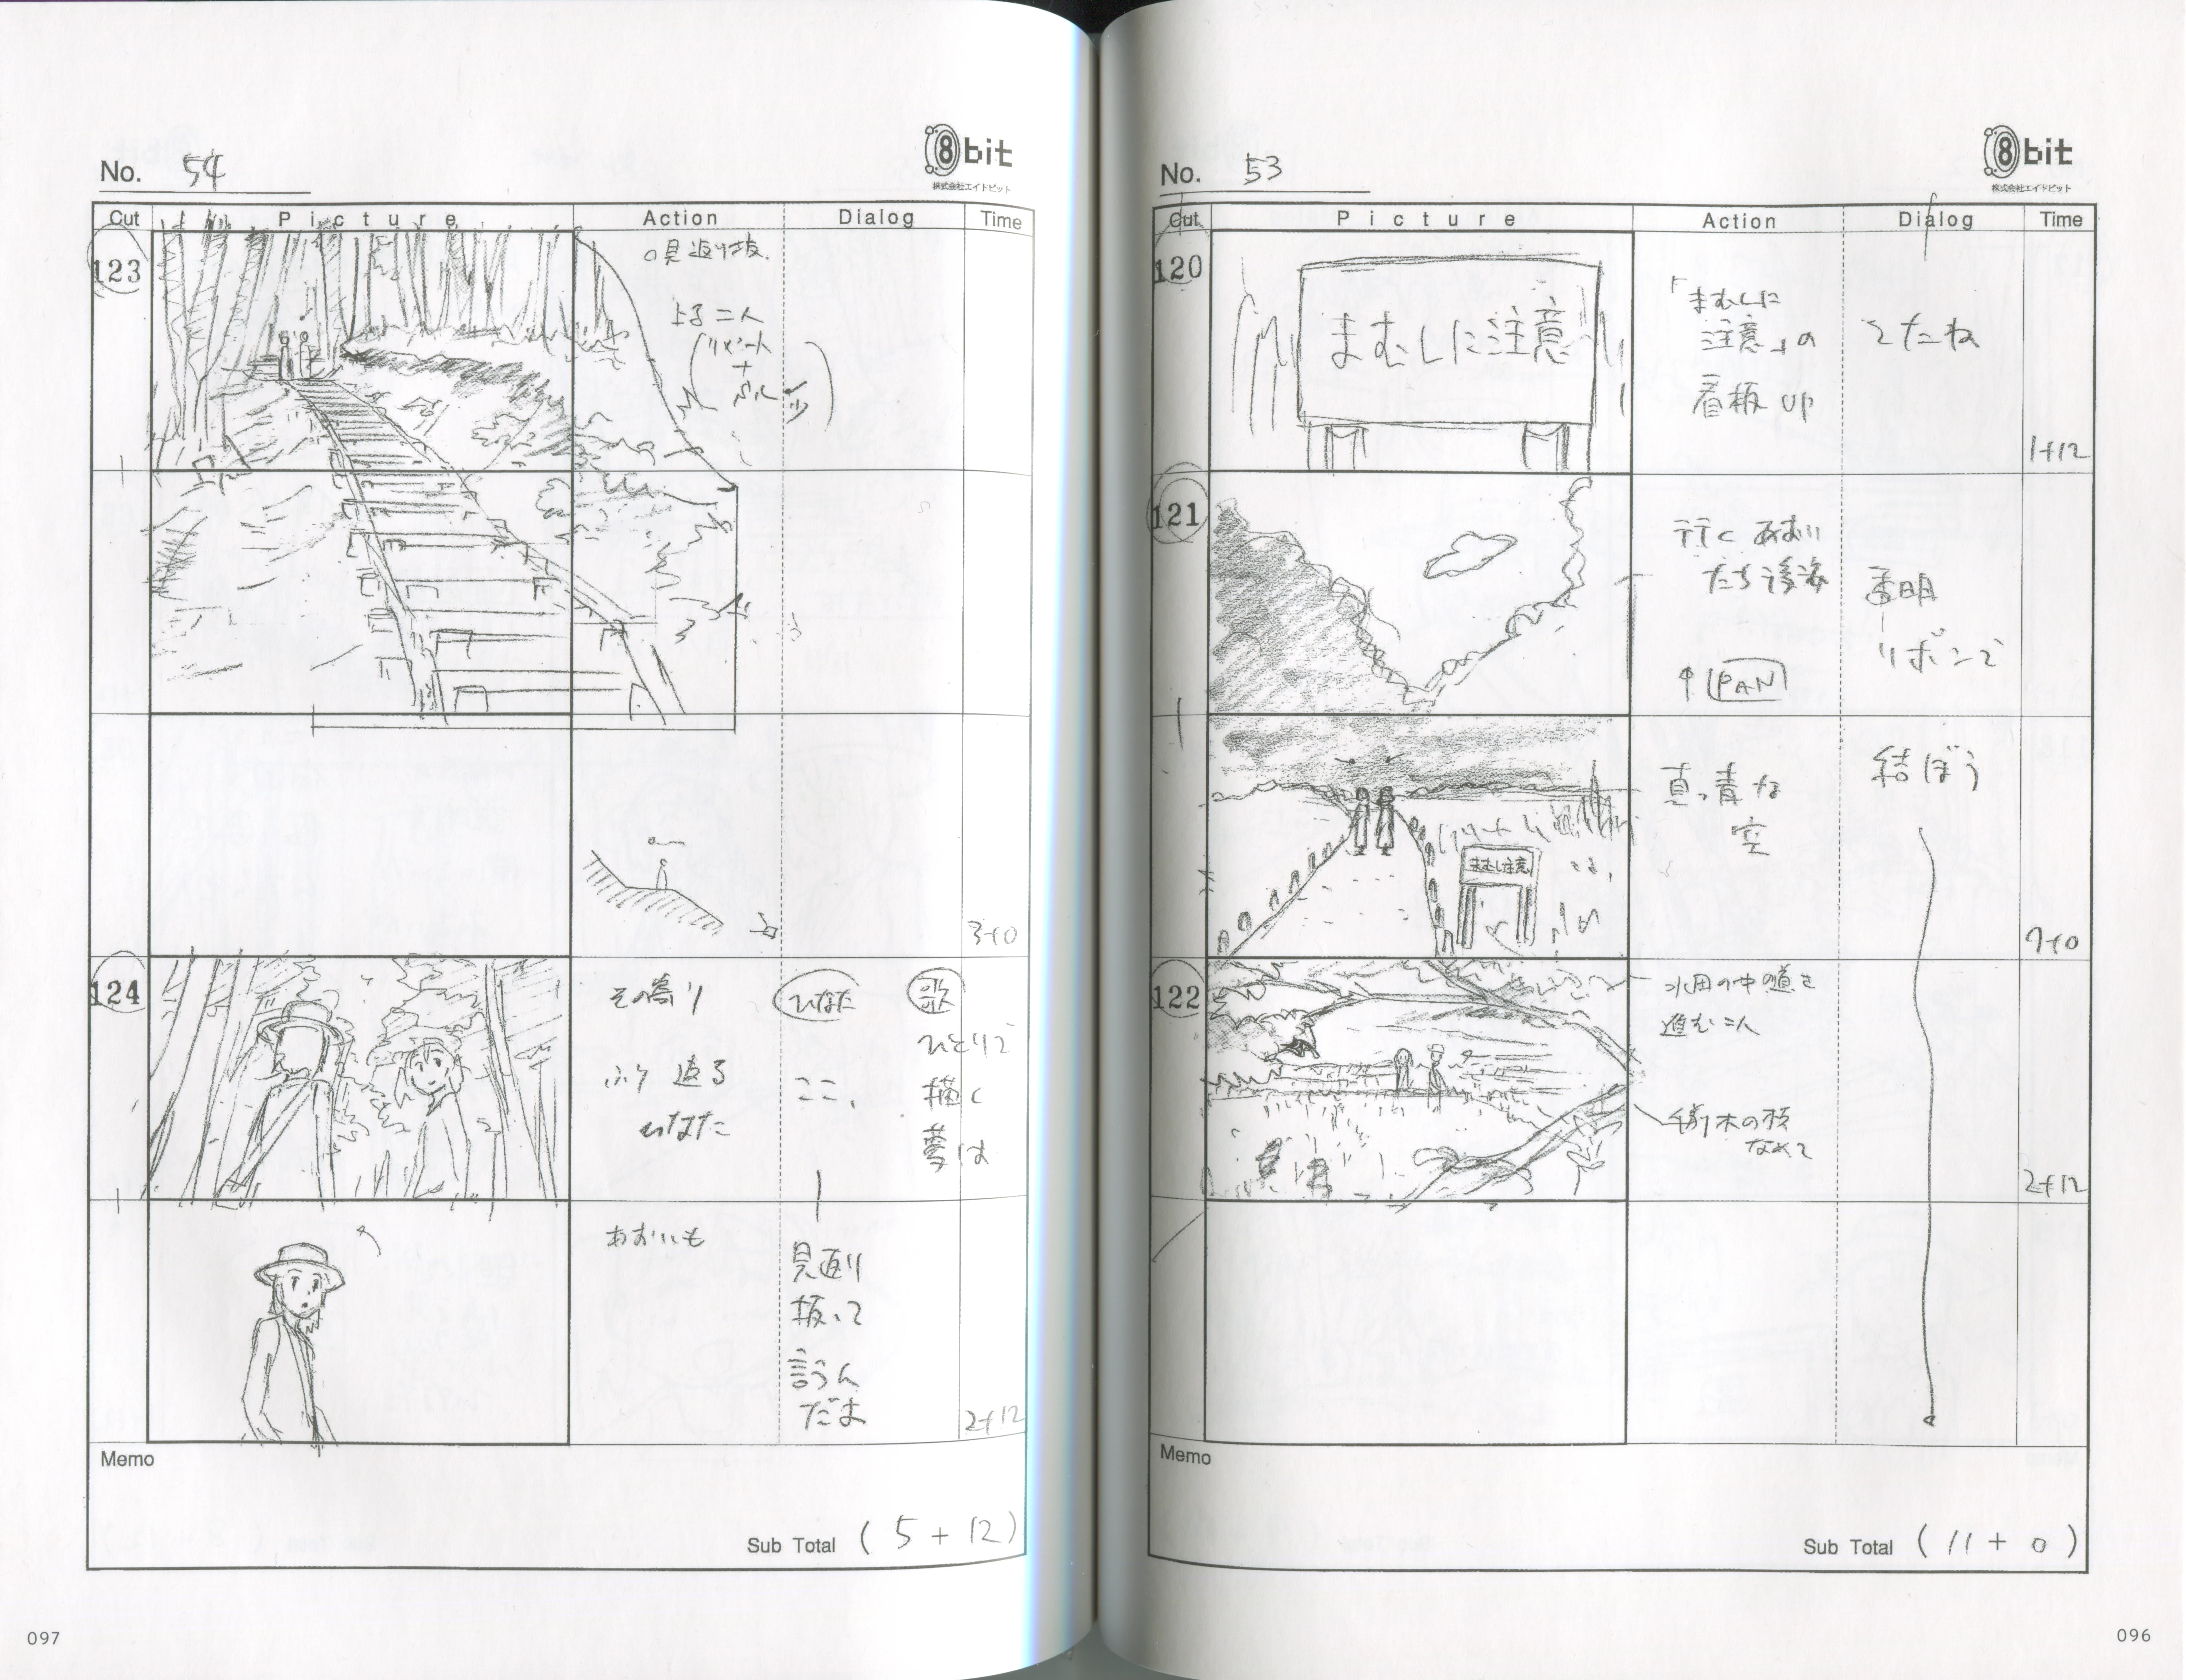 No. 53
8bit
株式会社エイトビット
Cut Picture Action Dialog Time
120
まむしに注意
「まむしに
注意」の
看板 UP
てたね
1+12
121
行く あおい
たち後姿
↑PAN
透明
リボンで
真っ青な
空
結ぼう
まむし注意
7+0
122
水田の中の道を
進む二人
手前木の枝
なめて
2+12
Memo
Sub Total ( 11 + 0 )
096
No. 54
8bit
株式会社エイトビット
Cut Picture Action Dialog Time
123
○見返り坂
上る二人
(リピート
+
少)
3+0
124
その寄り
ふり返る
ひなた
ひなた
ここ、
歌
ひとりで
描く
夢は
あおいも
見返り
坂って
言うん
だよ
2+12
Memo
Sub Total ( 5 + 12 )
097